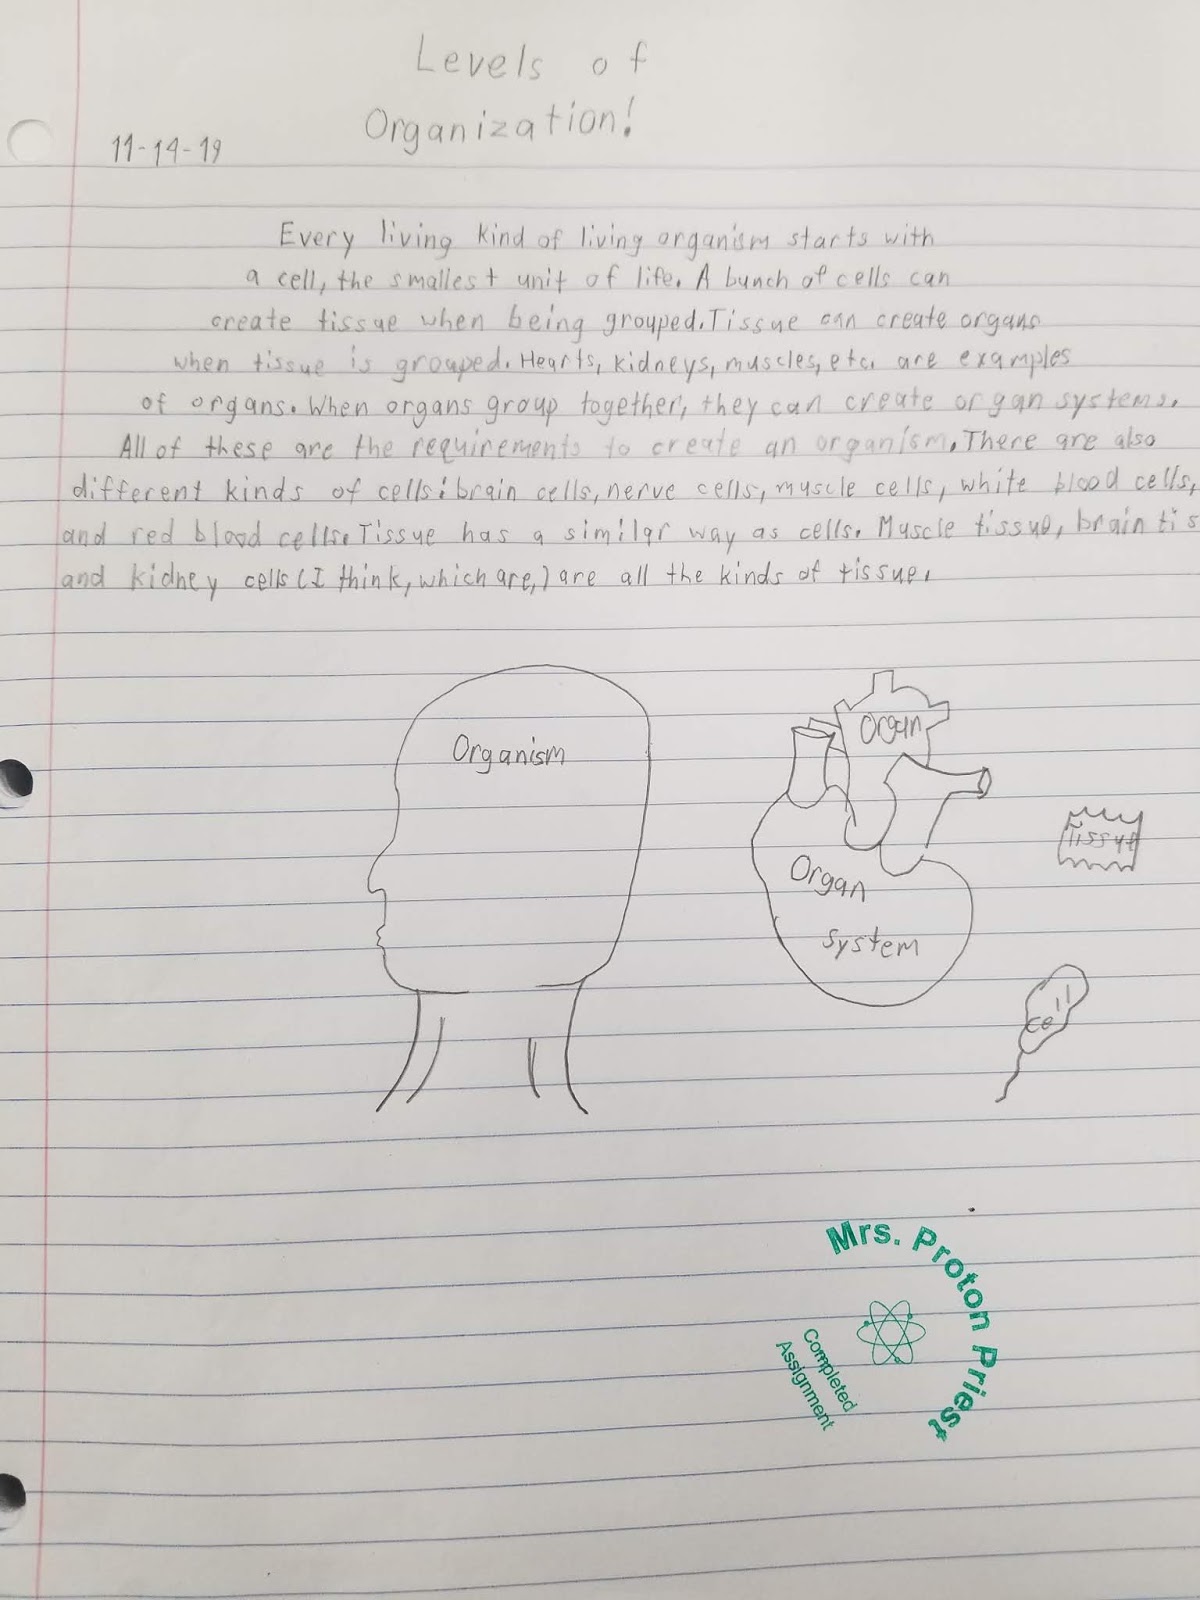 Levels of
Organization!
11-14-19
Every living kind of living organism starts with
a cell, the smallest unit of life. A bunch of cells can
create tissue when being grouped. Tissue can create organs
when tissue is grouped. Hearts, kidneys, muscles, etc. are examples
of organs. When organs group together, they can create organ systems.
All of these are the requirements to create an organism. There are also
different kinds of cells: brain cells, nerve cells, muscle cells, white blood cells,
and red blood cells. Tissue has a similar way as cells. Muscle tissue, brain tis
and kidney cells (I think, which are,) are all the kinds of tissue.
Organism
Organ
Tissue
Organ
system
Cell
Mrs. Proton Priest
Completed
Assignment